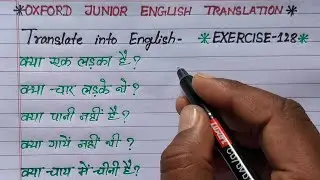 *OXFORD JUNIOR ENGLISH TRANSLATION*
Translate into English- *EXERCISE-128
क्या एक लड़का है-?
क्या चार लड़के थे-?
क्या पानी नहीं है-?
क्या गायें नहीं थी-?
क्या चाय में चीनी है?